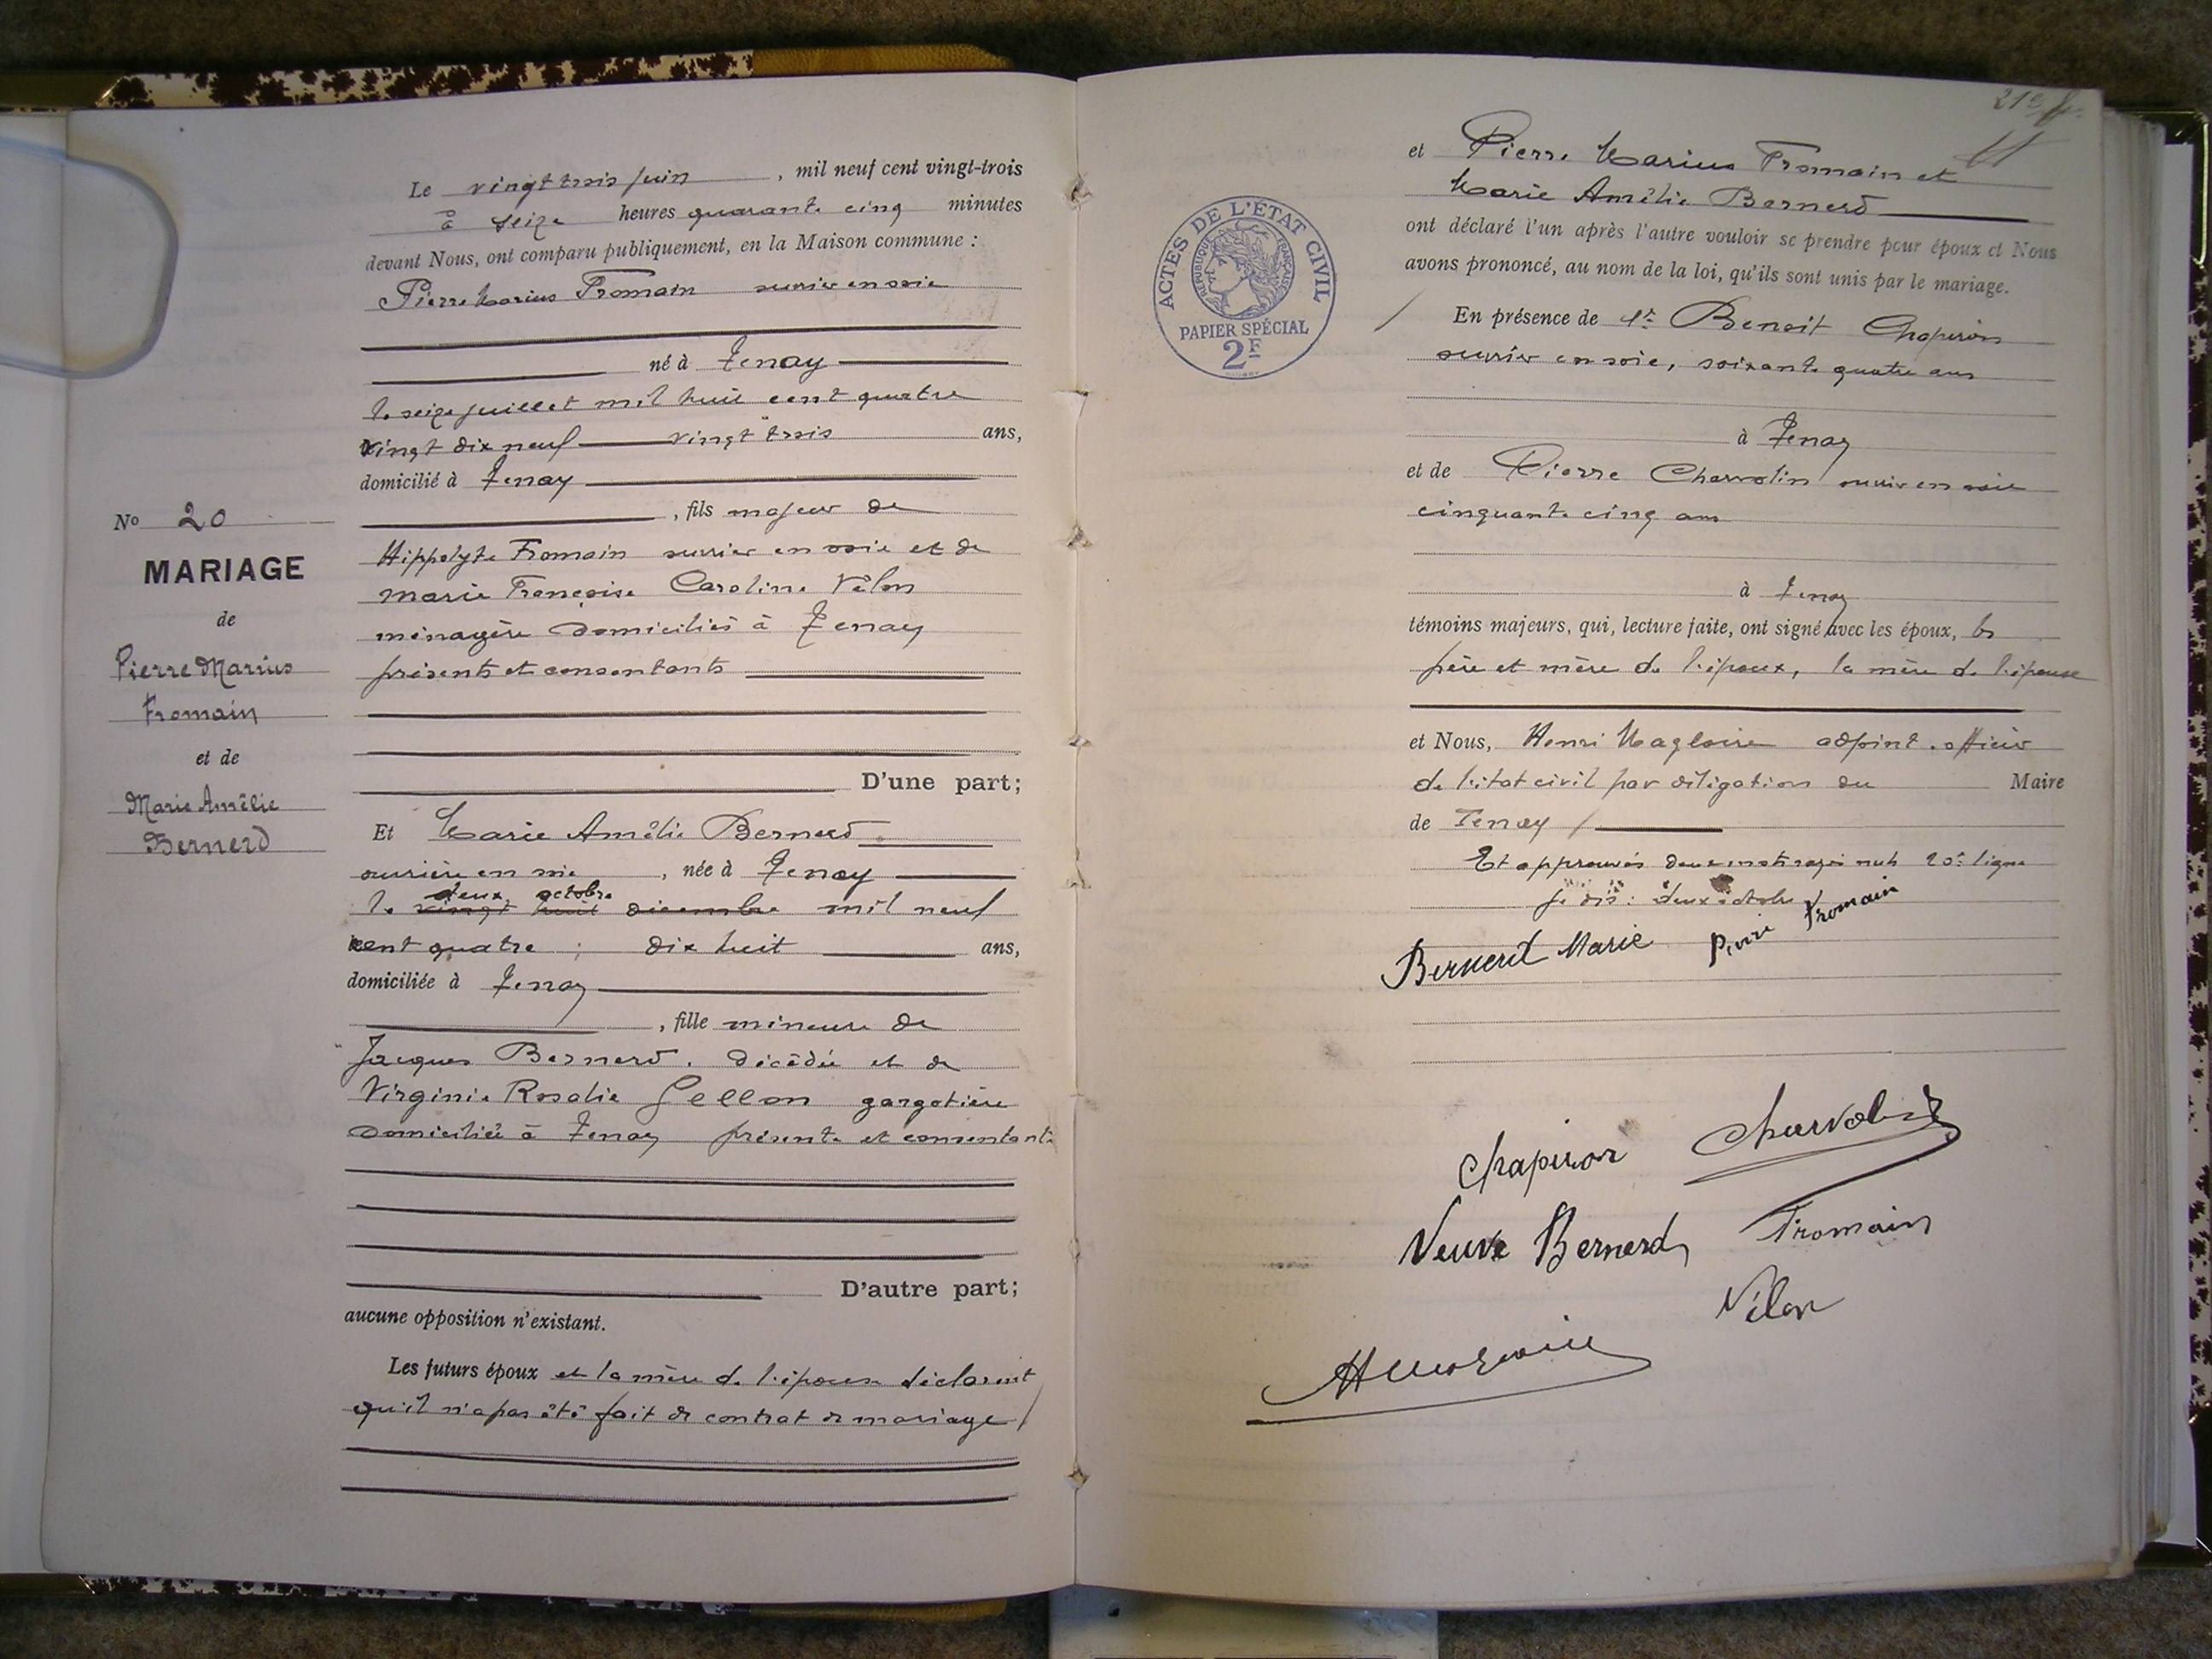 Le vingt trois juin, mil neuf cent vingt-trois
à seize heures quarante cinq minutes
devant Nous, ont comparu publiquement, en la Maison commune :
Pierre Marius Fromain ouvrier en soie
né à Tenay
le seize juillet mil huit cent quatre
vingt dix neuf vingt trois ans,
domicilié à Tenay
, fils majeur de
Hippolyte Fromain ouvrier en soie et de
marie Françoise Caroline Vélon
ménagère domiciliés à Tenay
présents et consentants
D'une part;
Et Marie Amélie Bernerd
ouvrière en soie, née à Tenay
deux octobre
le vingt huit décembre mil neuf
cent quatre ; dix huit ans,
domiciliée à Tenay
, fille mineure de
Jacques Bernerd. décédé et de
Virginie Rosalie Gellon gargotière
domiciliée à Tenay présente et consentante
D'autre part;
aucune opposition n'existant.
Les futurs époux et la mère de l'épouse déclarent
qu'il n'a pas été fait de contrat de mariage /
No 20
MARIAGE
de
Pierre Marius
Fromain
et de
Marie Amélie
Bernerd
ACTES DE L'ÉTAT CIVIL
RÉPUBLIQUE FRANÇAISE
PAPIER SPÉCIAL
2F
et Pierre Marius Fromain et
Marie Amélie Bernerd
ont déclaré l'un après l'autre vouloir se prendre pour époux et Nous
avons prononcé, au nom de la loi, qu'ils sont unis par le mariage.
En présence de 1r Benoit Chapiron
ouvrier en soie, soixante quatre ans
à Tenay
et de Pierre Charvolin ouvrier en soie
cinquante cinq ans
à Tenay
témoins majeurs, qui, lecture faite, ont signé avec les époux, les
père et mère de l'époux, la mère de l'épouse
et Nous, Henri Magloire adjoint. officier
de l'état civil par délégation du Maire
de Tenay /
Et approuvés deux mots rayés nuls 20e ligne
je dis : deux octobre
Bernerd Marie Pierre Fromain
Chapiron Charvolin
Veuve Bernerd Fromain
Vélon
HMagloire